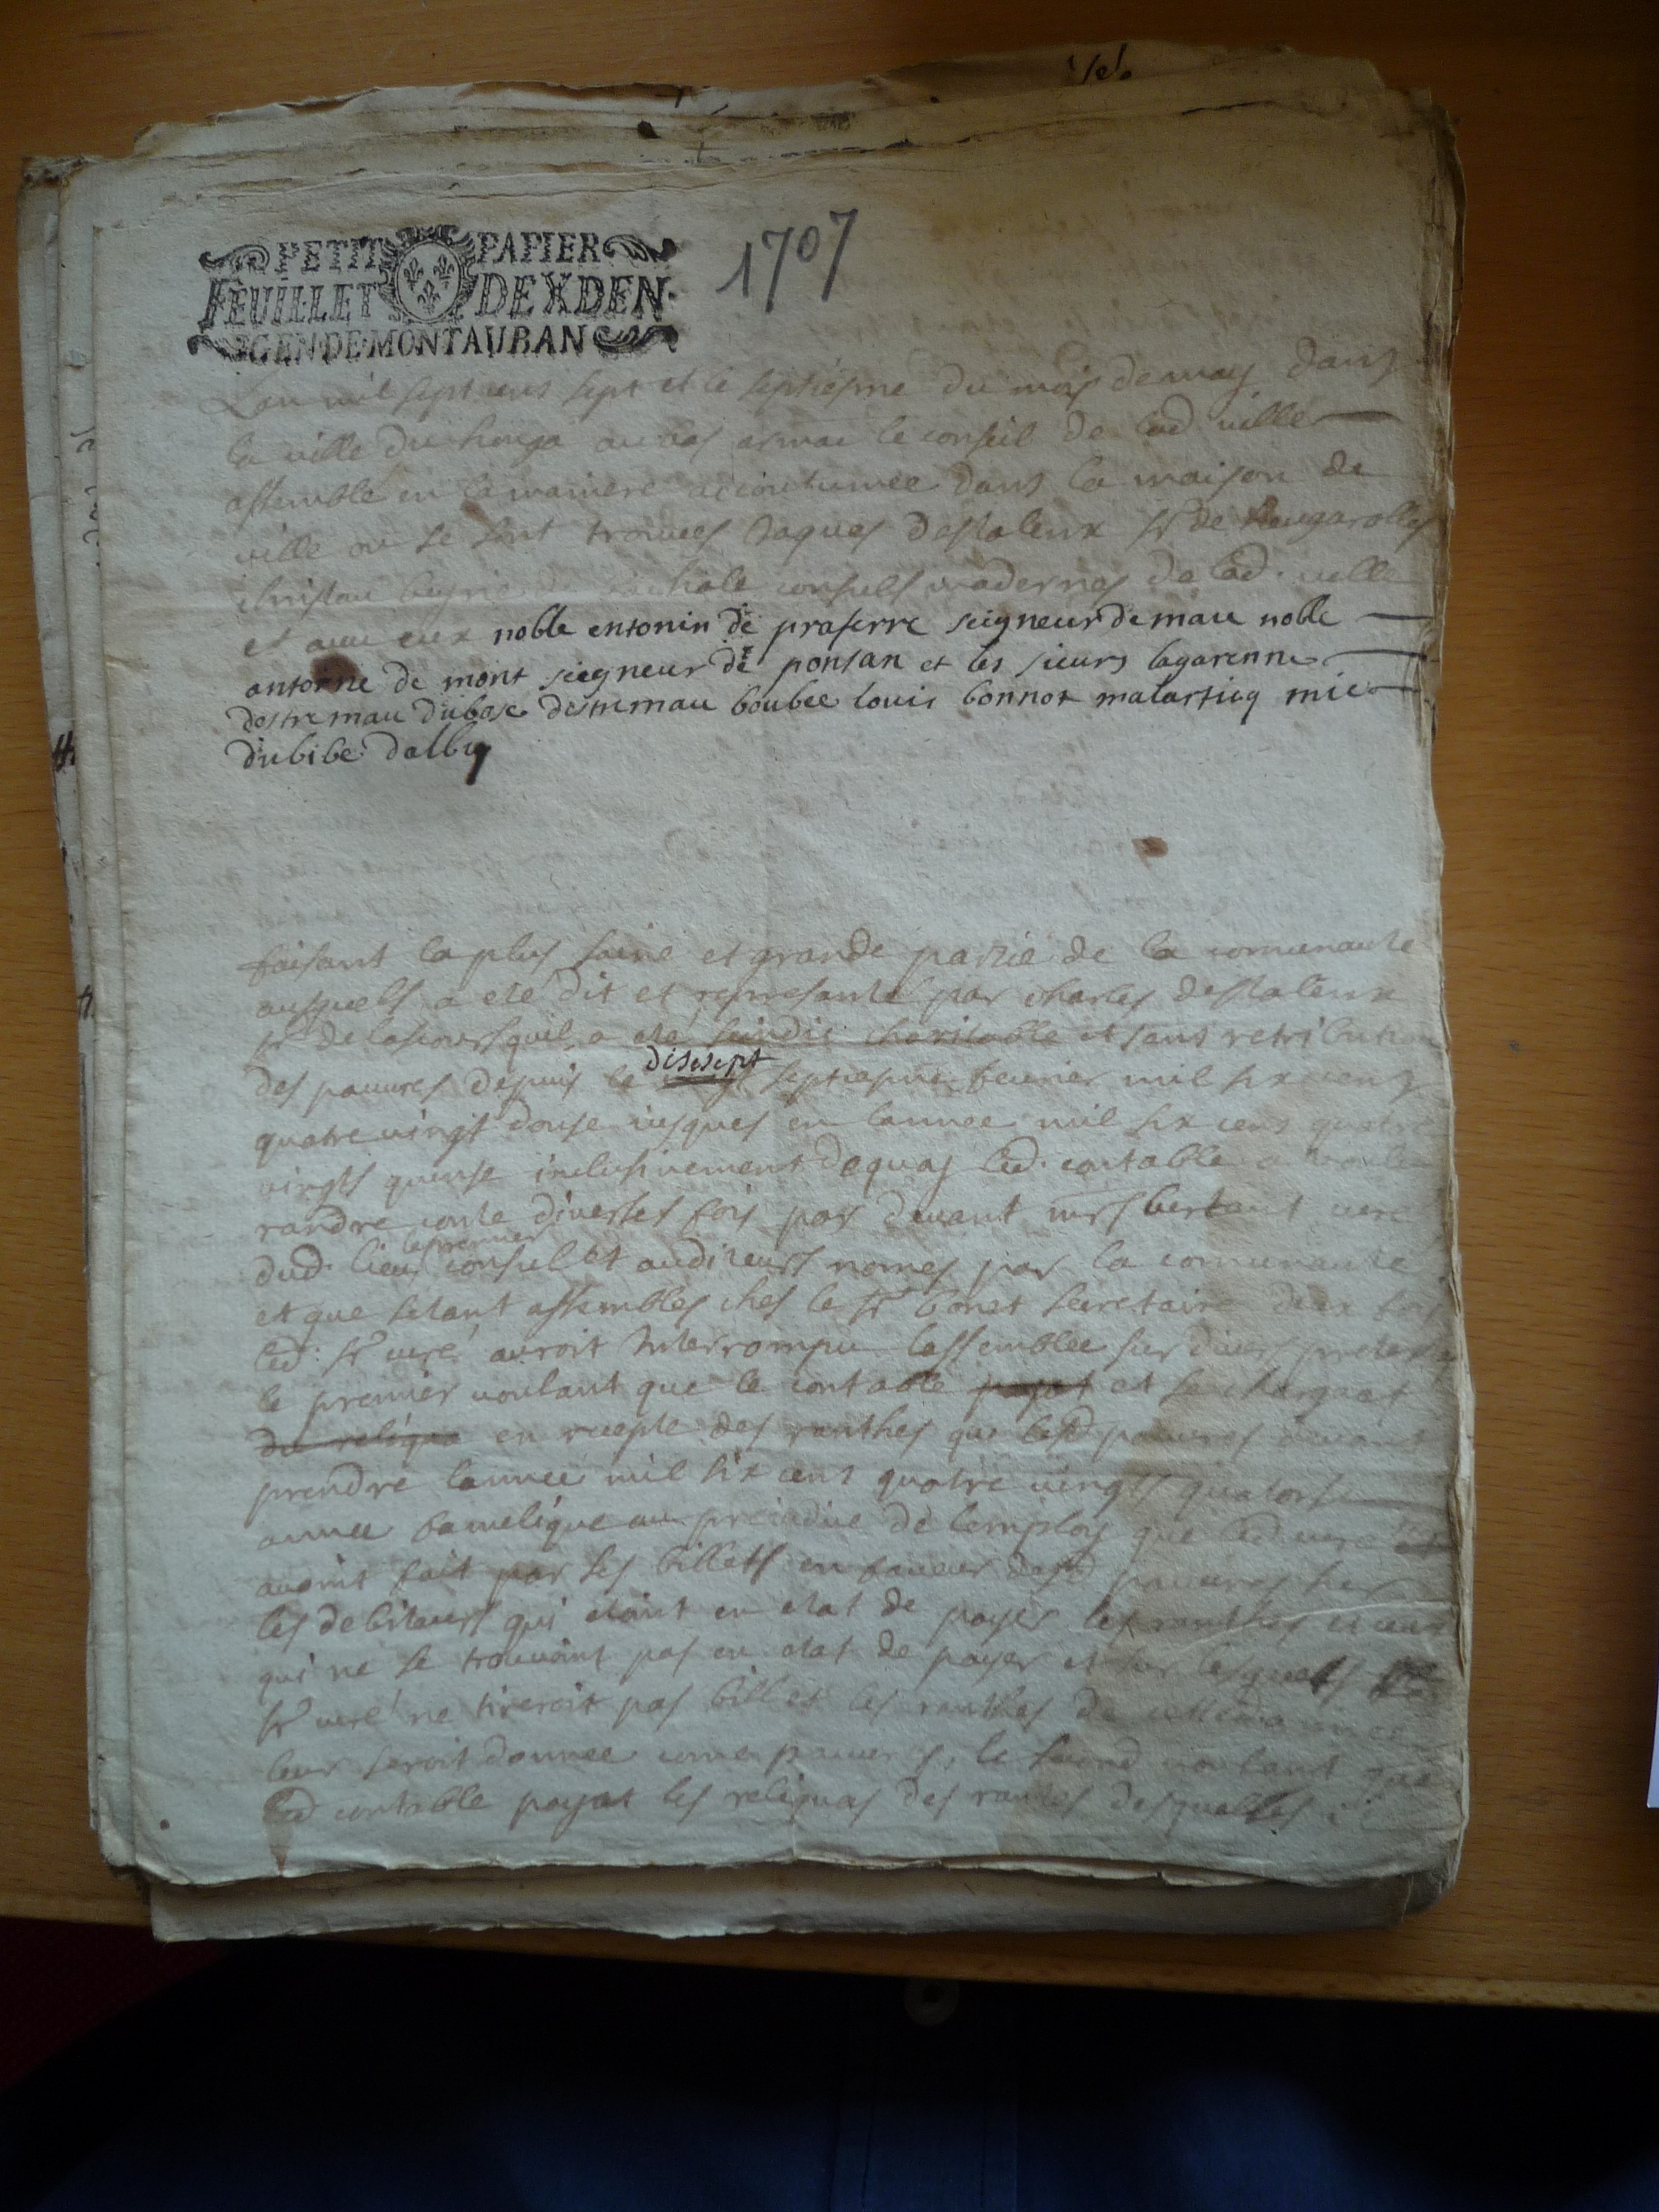 PETIT PAPIER
FEUILLET DE X DEN.
GEN DE MONTAUBAN
1707
Lan mil sept cens sept et le septiesme du mois de may dans
la ville du houga au bas armac le conseil de lad ville
assemble en la maniere accoutumee dans la maison de
ville ou se sont trouves Jaques destalenx sr de
consuls modernes de lad. ville
et avec eux noble entonin de praferre seigneur de mau noble
antoine de mont seigneur de ponsan et les sieurs lagarenne
destremau dubosc destremau boubee louis bonnot malarticq mic
dubibe dalby
faisant la plus saine et grande partie de la comunaute
ausquels a ete dit et represante par charles destalenx
sr de lascours quil a ete scindic charitable et sans retribution
des pauvres depuis le disesept septiesme fevrier mil six cens
quatre vingt douse iusques en lannee mil six cens quatre
vingts quinse inclusivement dequoy led. contable a voulu
randre conte diverses fois par devant mrs curé
dud. lieu le premier consul et auditeurs nomes par la comunaute
et que setant assembles ches le sr bonet secretaire deux fois
led. sr curé auroit Interrompu lassemblee sur divers pretex
le premier voulant que le contable payat et se chargeat
du reliqua en recepte des ranthes que lesd pauvres devoint
prendre lannee mil six cens quatre vingts quatorse
annee famelique au preiudice de lemploy que led. curé
avoint fait par ses billets en faveur desd pauvres sur
les debiteurs qui etoint en etat de payer les ranthes et ceux
qui ne se trouvoint pas en etat de payer et sur lesquels
sr curé ne tireroit pas billet les ranthes de
leur seroit donnee come pauvres, le second voulant que
led contable payat les reliquas des rantes desquelles il